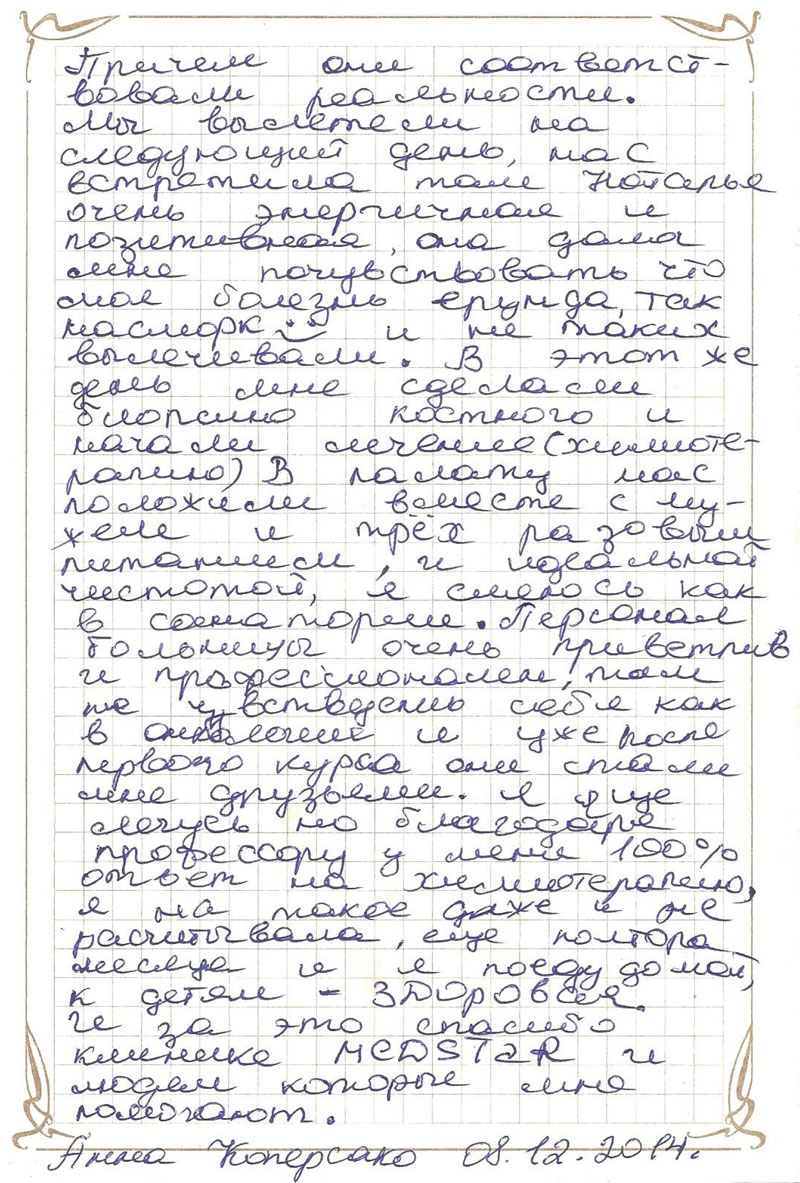 Причем они соответст-
вовали реальности.
Мы вылетели на
следующий день, нас
встретила там Наталья
очень энергичная и
позитивная, она дала
мне почувствовать что
моя болезнь ерунда, так
насморк и не таких
вылечивали. В этот же
день мне сделали
биопсию костного и
начали лечение (химиоте-
рапию) В палату нас
положили вместе с му-
жем и трёх разовым
питанием, и идеальной
чистотой, я смеюсь как
в санатории. Персонал
больницы очень приветлив
и профессионален, там
не чувствуешь себя как
в онкологии и уже после
первого курса они стали
мне друзьями. Я еще
лечусь но благодаря
профессору у меня 100%
ответ на химиотерапию,
я на такое даже и не
расчитывала, еще полтора
месяца и я поеду домой,
к детям - ЗДОРОВАЯ.
И за это спасибо
клинике MEDSTAR и
людям которые мне
помогают.
Анна Коперсако 08.12.2014г.